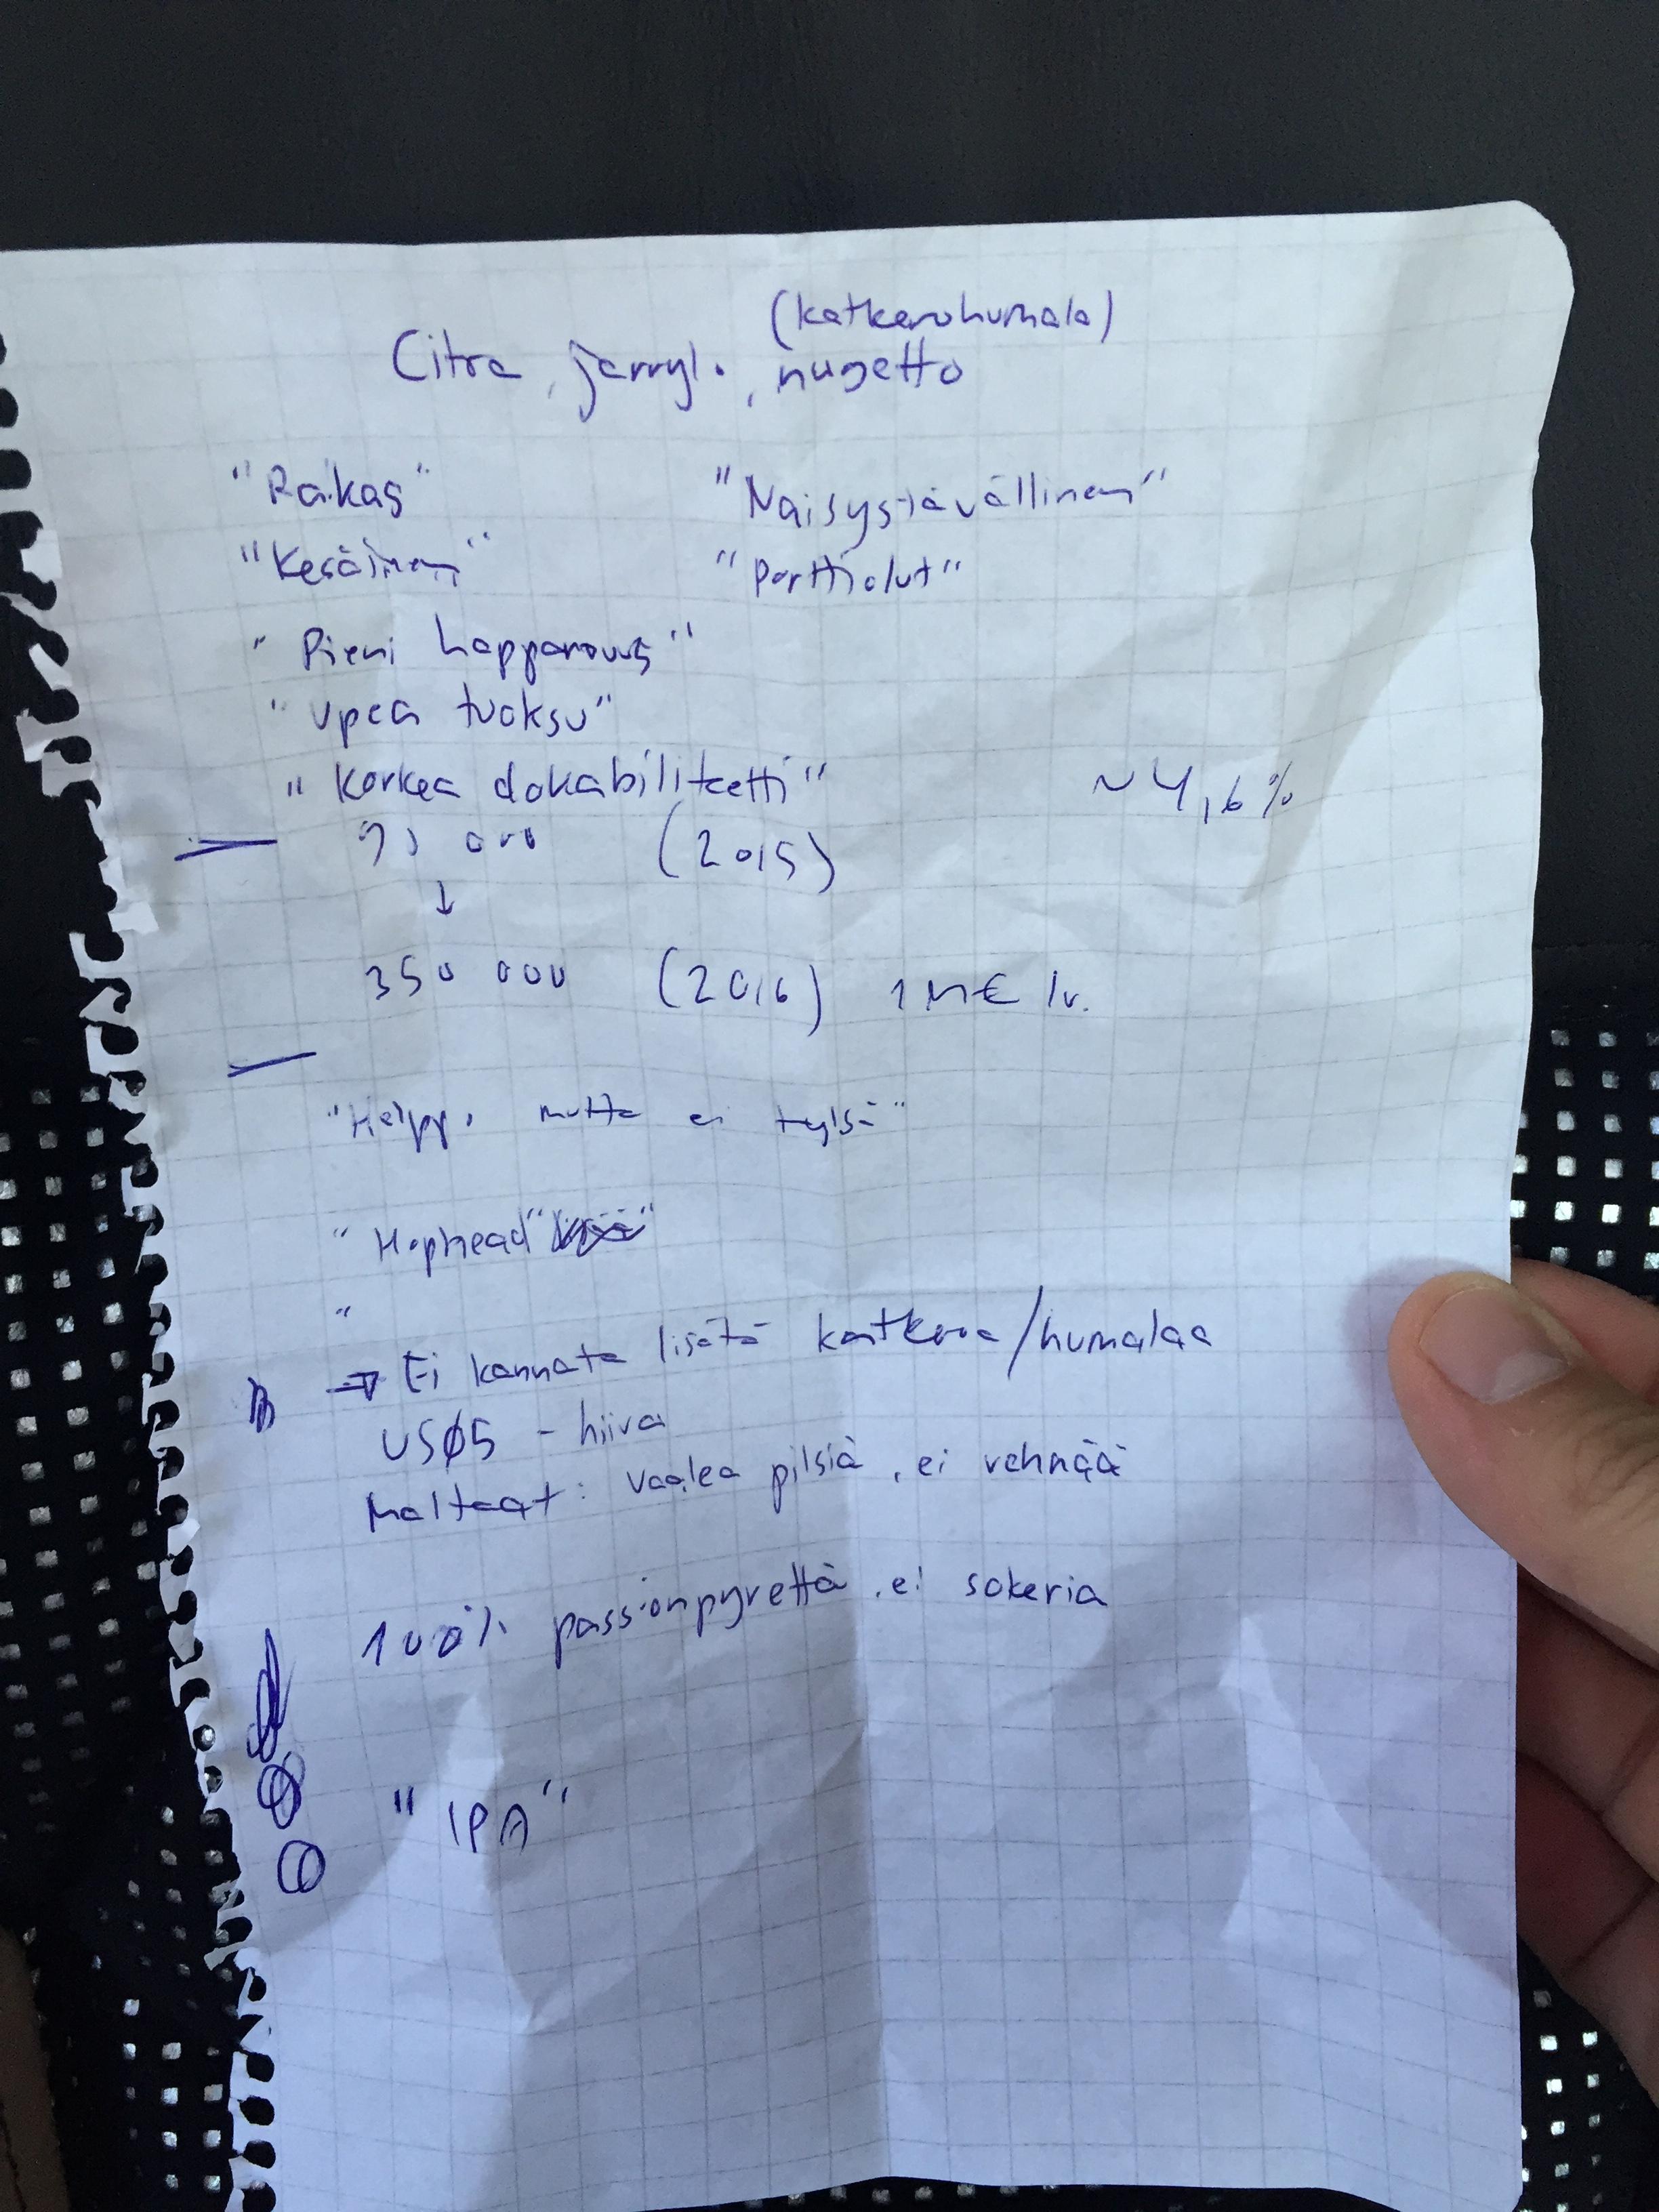 (katkerohumala)
Citra, jarryl., nugetto
"Raikas" "Naisystävällinen"
"Kesäinen" "Porttiolut"
"Pieni happamuus"
"Upea tuoksu"
"Korkea dokabiliteetti" ~ 4,6%
000 (2015)
↓
350 000 (2016) 1 M€ lv.
"Helppo, mutta ei tylsä"
"Hophead"
"
→ Ei kannata lisätä katkeroa/humalaa
USØ5 - hiiva
Maltaat: vaalea pilsiä, ei vehnää
100% passionpyrettä, ei sokeria
"IPA"